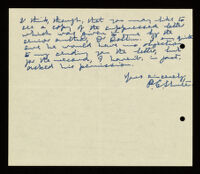 I think, though, that you may like to
see a copy of the suppressed letter
which was given to me by the
senior author, Dr. I am quite
sure he would have no objection
to my sending you the letter, but
for the record, I haven't, in fact,
asked his permission.
Yours sincerely,